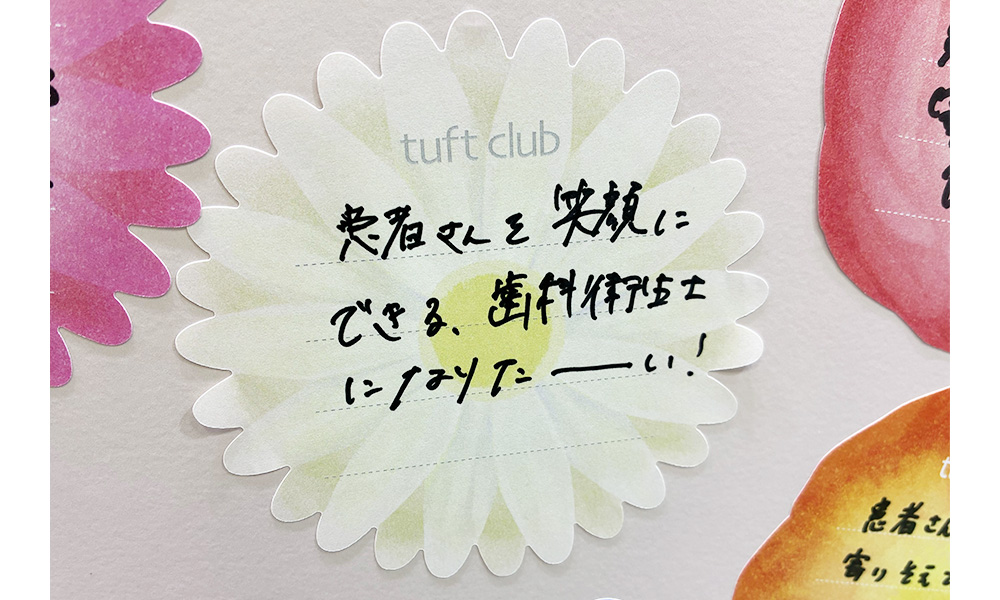 tuft club
患者さんを笑顔に
できる、歯科衛生士
になりたーい!
患者さん
寄りそえ